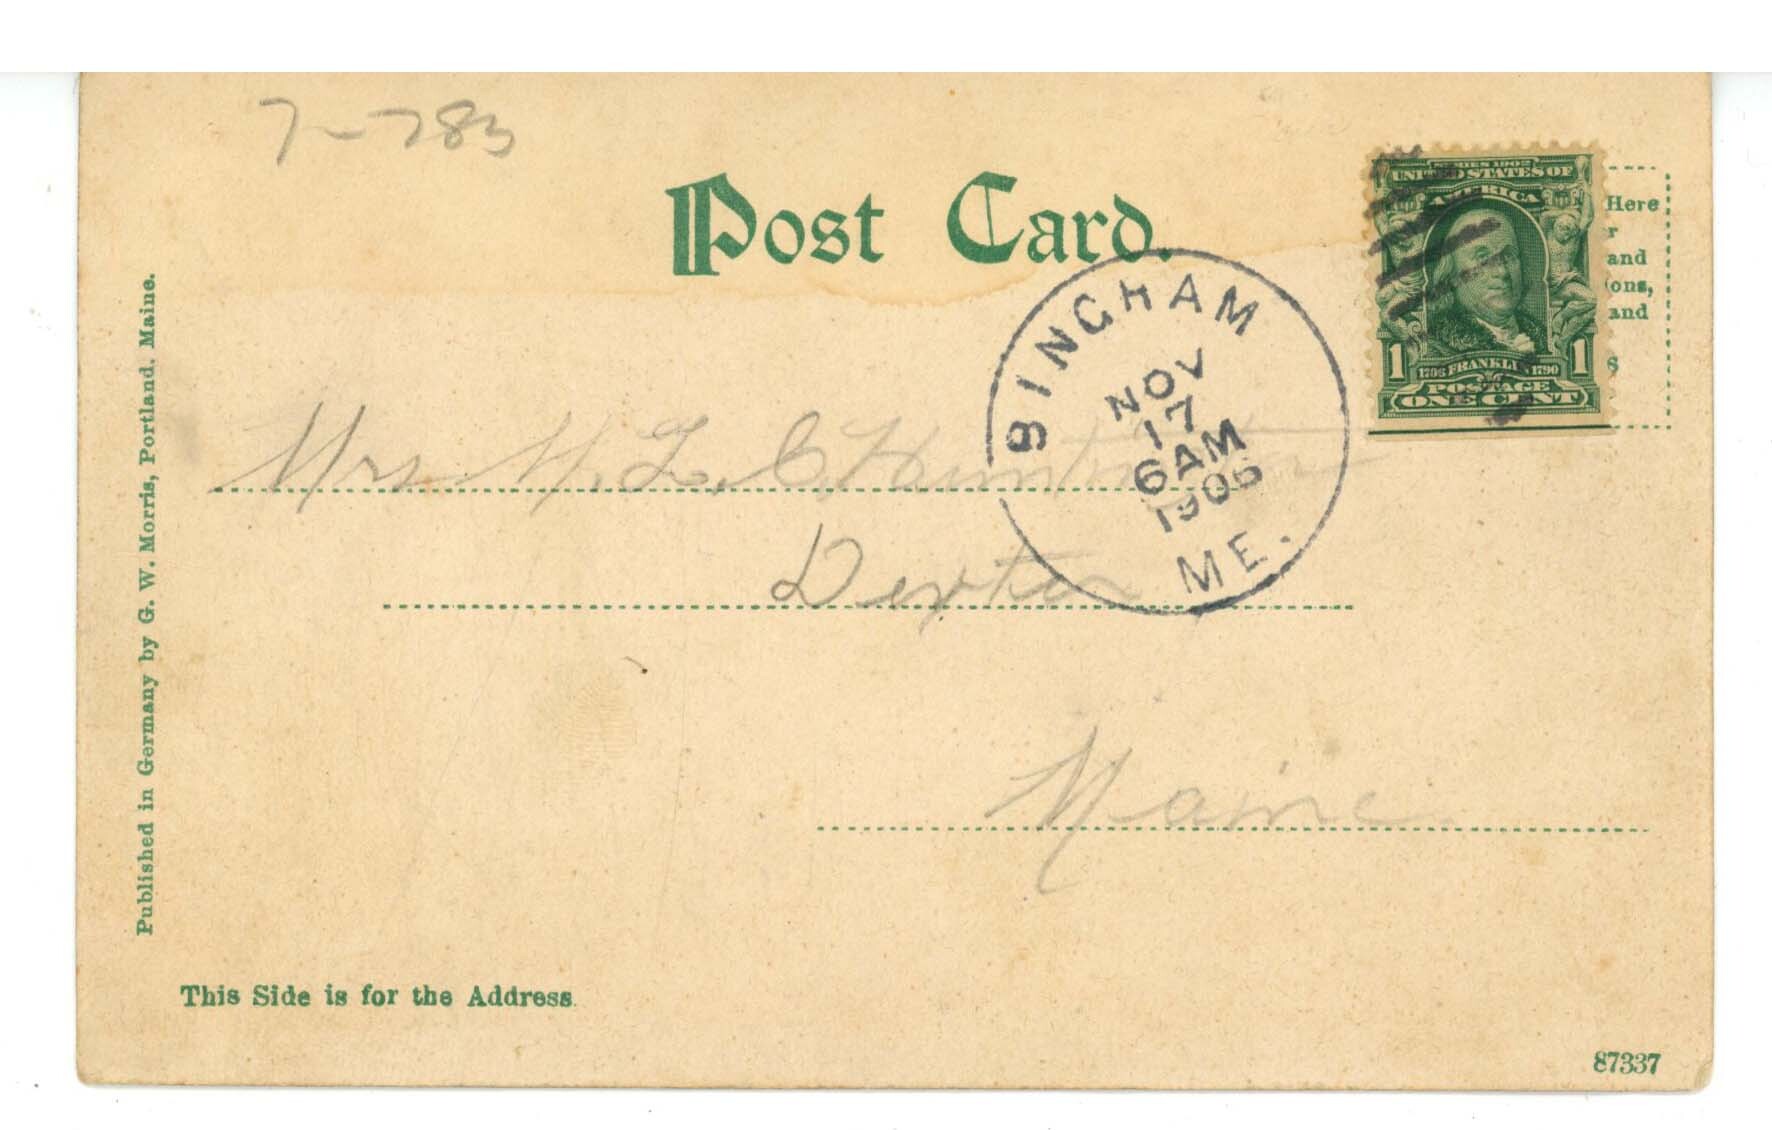 7-783
Post Card.
SERIES 1902
UNITED STATES OF
AMERICA
1 1706 FRANKLIN 1790 1
POSTAGE
ONE CENT
Here
r
and
ions,
and
s
BINGHAM
NOV
17
6AM
1906
ME.
Mrs. H. L. C. Huntington
Dexter
Maine.
Published in Germany by G. W. Morris, Portland, Maine.
This Side is for the Address.
87337